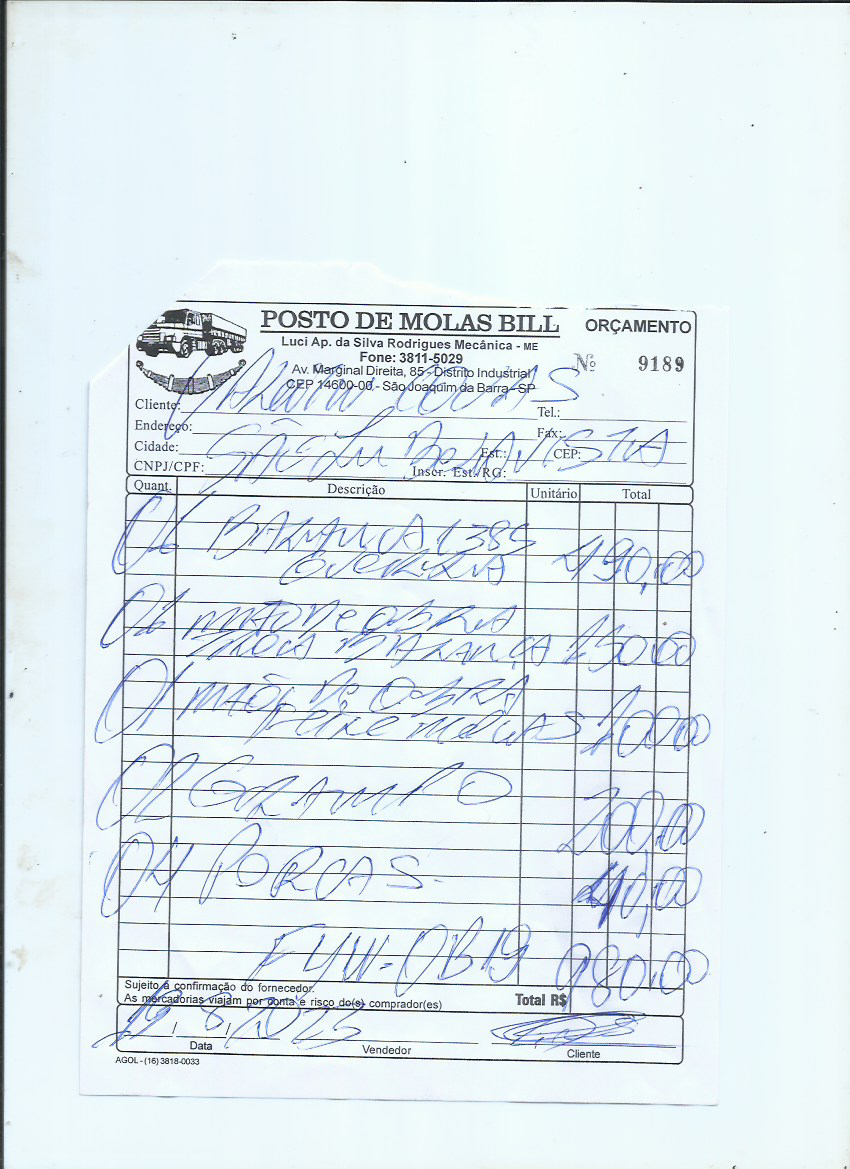 POSTO DE MOLAS BILL
ORÇAMENTO
Luci Ap. da Silva Rodrigues Mecânica - ME
Fone: 3811-5029
Nº 9189
Av. Marginal Direita, 85 - Distrito Industrial
CEP 14600-00 - São Joaquim da Barra-SP
Cliente:
Tel.:
Endereço:
Fax:
Cidade: Est.: CEP:
CNPJ/CPF: Inscr. Est./RG:
Quant. Descrição Unitário Total
01 BALANÇA 1385
490,00
01 MÃO DE OBRA
TROCA BALANÇA 150,00
01 MÃO DE OBRA
FEIXE MOLAS 100,00
02 GRAMPO
200,00
04 PORCAS 40,00
980,00
Sujeito á confirmação do fornecedor.
As mercadorias viajam por conta e risco do(s) comprador(es)
Total R$
19 / 8 / 2023
Data Vendedor Cliente
AGOL - (16) 3818-0033